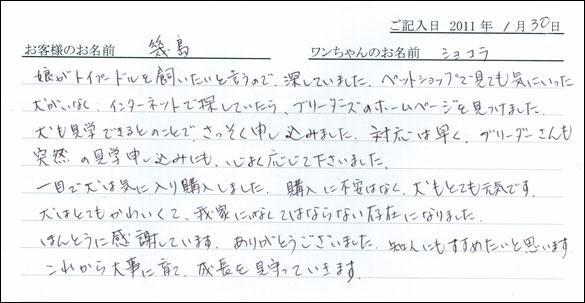 ご記入日 2011 年 1月 30日
お客様のお名前 幾島 ワンちゃんのお名前 ショコラ
娘がトイプードルを飼いたいと言うので、探していました。ペットショップで見ても気にいった
犬がいなく、インターネットで探していたら、ブリーダーズのホームページを見つけました。
犬も見学できるとのことで、さっそく申し込みました。対応は早く、ブリーダーさんも
突然の見学申し込みにも、心よく応じて下さいました。
一目で犬は気に入り購入しました。購入に不安はなく、犬もとても元気です。
犬はとてもかわいくて、我家になくてはならない存在になりました。
ほんとうに感謝しています。ありがとうございました。知人にもすすめたいと思います。
これから大事に育て、成長を見守っていきます。